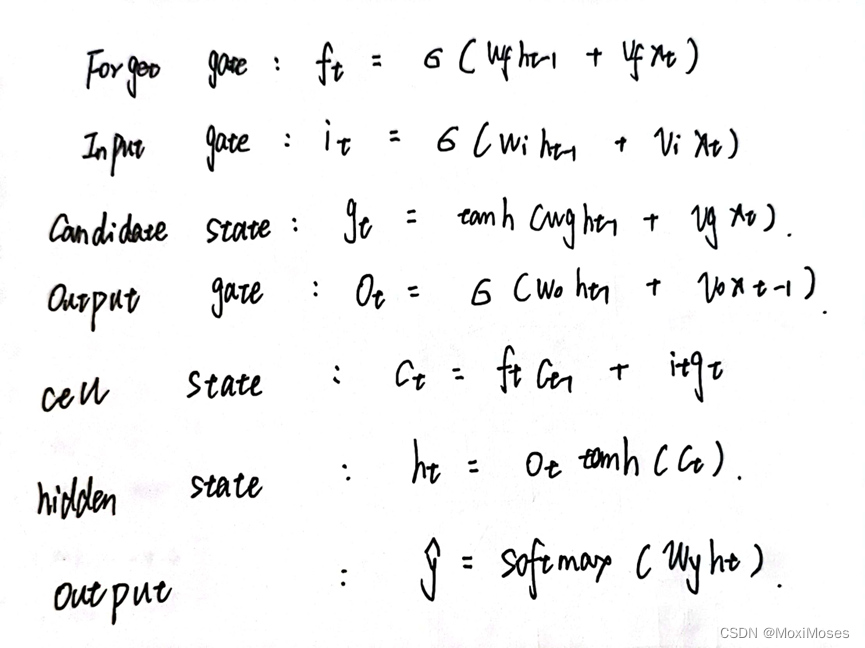 Forget gate : f_t = σ ( W_f h_{t-1} + V_f x_t )
Input gate : i_t = σ ( W_i h_{t-1} + V_i x_t )
Candidate state : g_t = tanh ( W_g h_{t-1} + V_g x_t ) .
Output gate : O_t = σ ( W_o h_{t-1} + V_o x_{t-1} ) .
cell state : C_t = f_t C_{t-1} + i_t g_t
hidden state : h_t = O_t tanh ( C_t ) .
output : ŷ = softmax ( W_y h_t ) .
CSDN @MoxiMoses